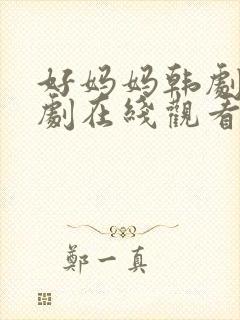 好妈妈韩剧
剧在线观看
郑一真